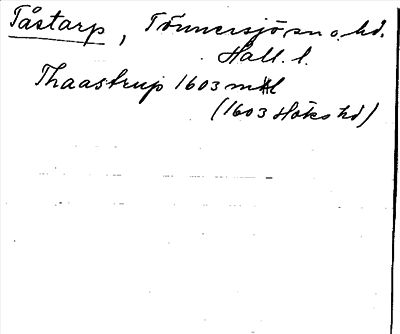 Tåstarp, Tönnersjö sn o. hd.
Hall. l.
Thaastrup 1603 mtl
(1603 Höks hd)